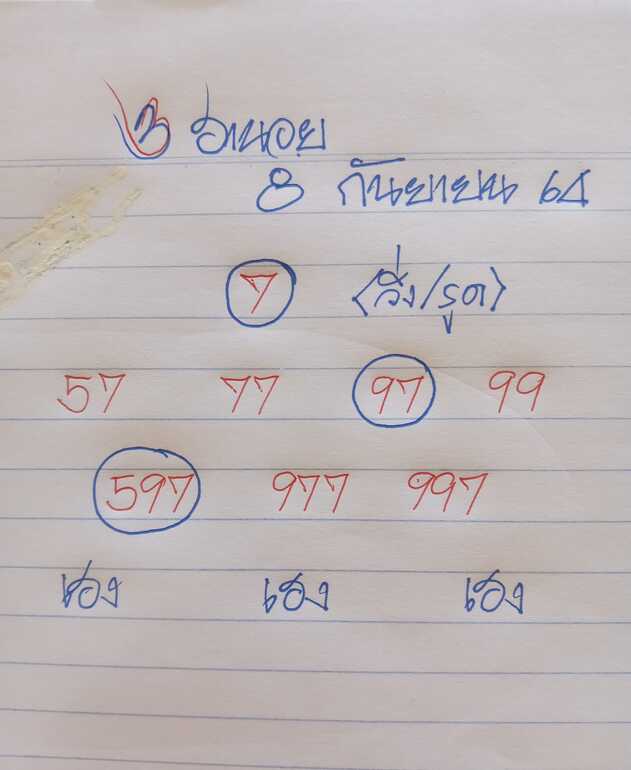 ฮานอย
8 กันยายน 64
7 (วิ่ง/รูด)
57 77 97 99
597 977 997
เฮง เฮง เฮง